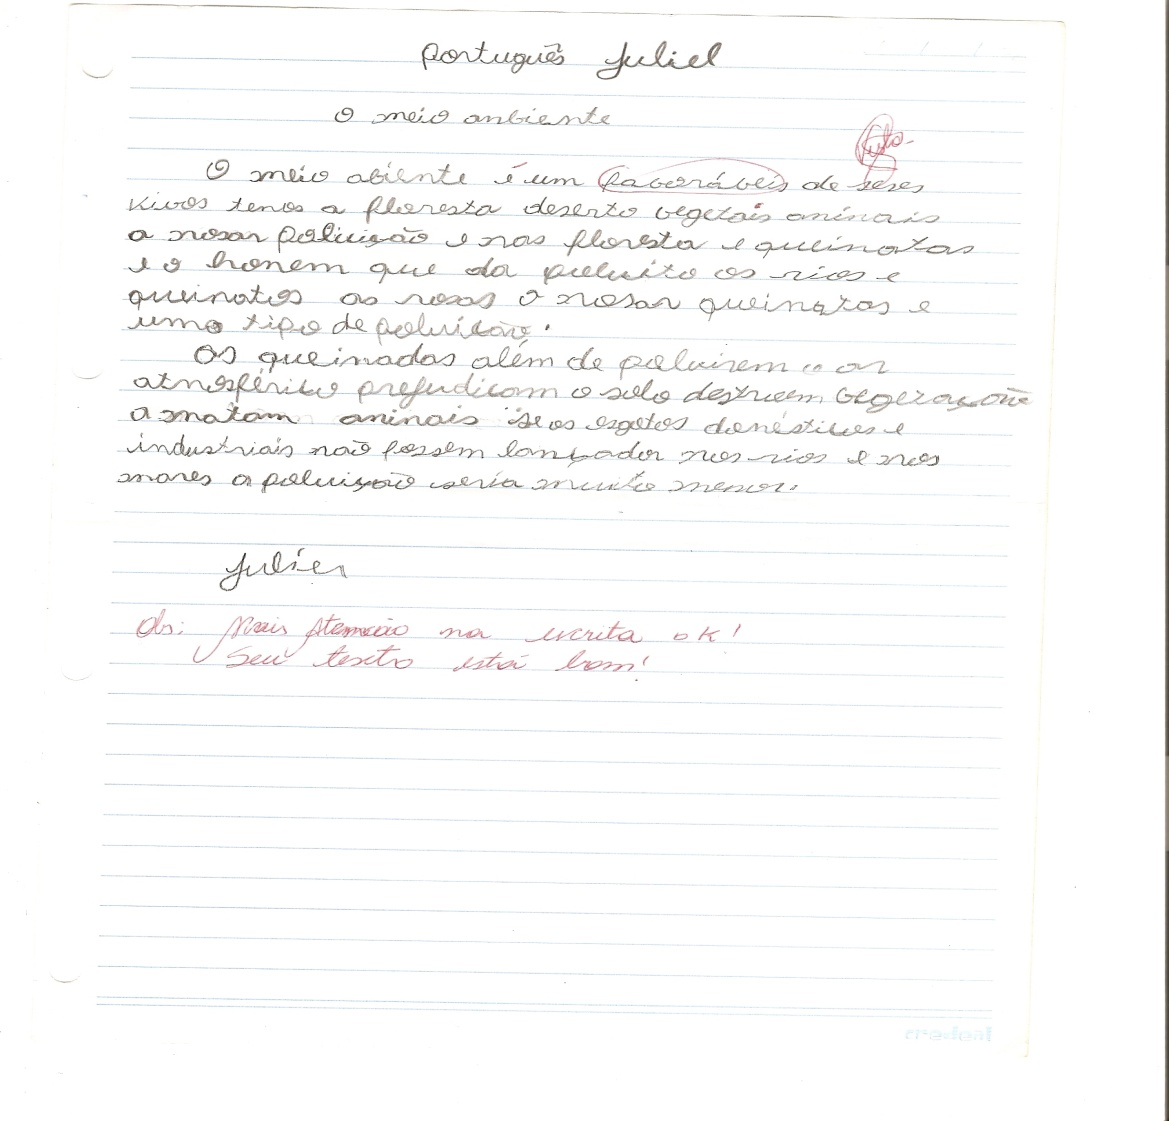 Português Juliel
O meio anbiente
Visto
O meio abiente é um faboráveis de seres
vivos tenos a floresta deserto vegetais aninais
a nosar poluição e nas floresta e queinatas
e o honem que da poluito os rios e
queinatos as rosas o nosar queinatas e
uma tipo de poluicão.
Os queinadas além de poluirem o ar
atnosférico prejudicam o solo destroem vegeração
a matam aninais se os esgotos donésticos e
industriais não fossem lançador nos rios e nos
mares a poluisão seria muito menor.
Julier
Obs: Mais Atemção na escrita ok!
Seu texto está bom!
credeal